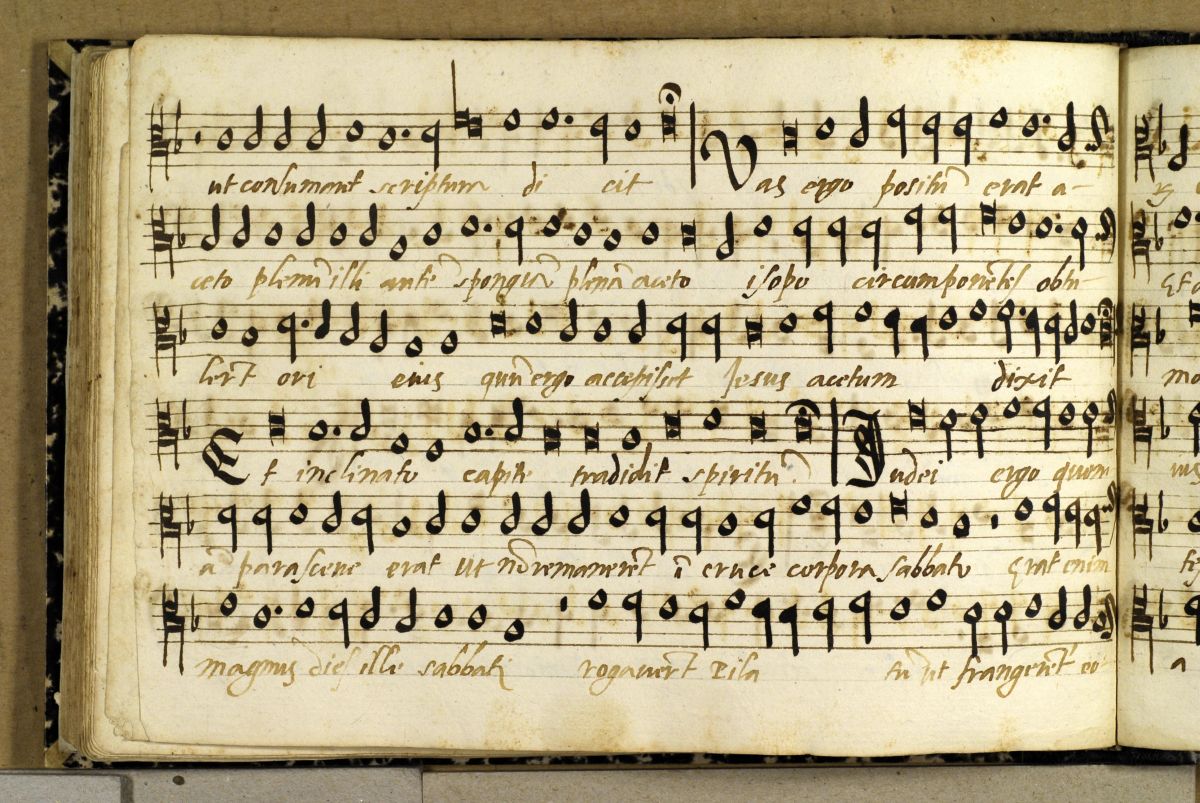 ut consumaret scriptura di cit Vas ergo positũ erat a-
ceto plenũ illi ante spongiã plenã aceto isopo circumponẽtes obtu-
lerũt ori eius qũ ergo accepisset Jesus acetum dixit
Et inclinato capite tradidit spiritũ Judei ergo quom
ã parasceve erat Ut nõ remanerẽt ĩ cruce corpora sabbato Erat enim
magnus dies ille sabbati rogaverũt Pila tũ ut frangerẽt eo